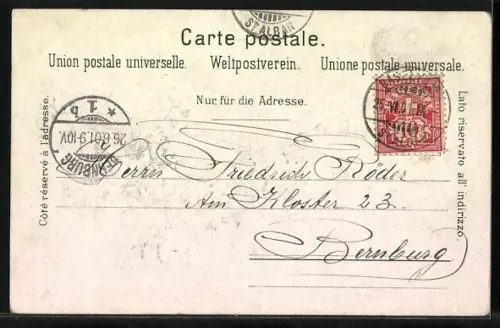 ST. ALBAN
Carte postale.
Union postale universelle. Weltpostverein. Unione postale universale.
Nur für die Adresse.
Côté réservé à l'adresse.
Lato riservato all' indirizzo.
* 1 b
26.6.01.9-10V.
BERNBURG
Herrn Friedrich Röder
Am Kloster 23.
Bernburg